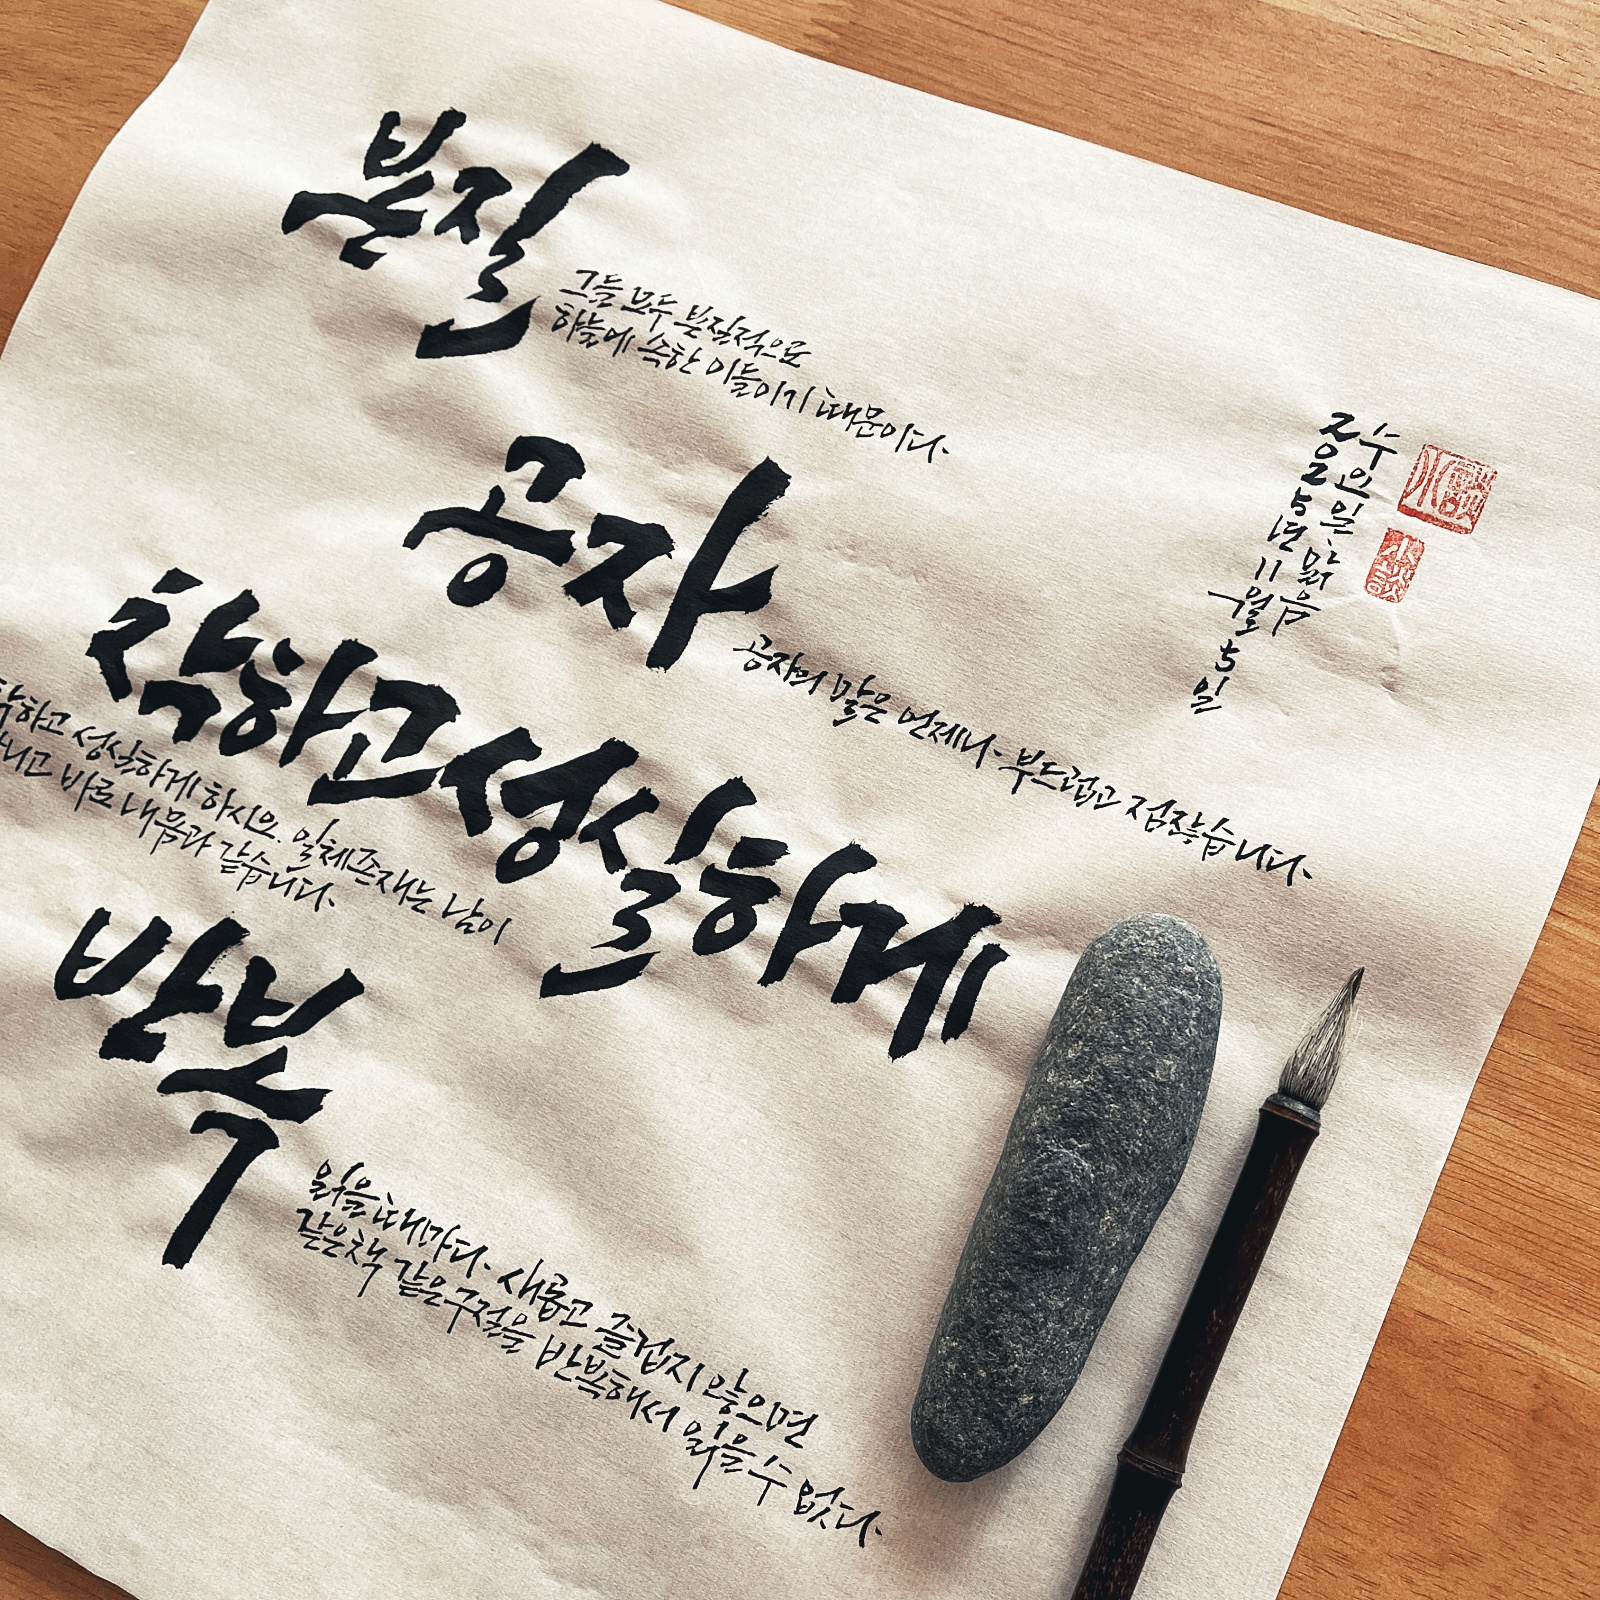 본질
그들 모두 본질적으로
하늘에 속한 이들이기 때문이다.
공자
공자의 말은 언제나 부드럽고 점잖습니다.
착하고 성실하게
착하고 성실하게 하시오. 일체존재는 남이
아니고 바로 내몸과 같습니다.
반복
읽을 때마다 새롭고 즐겁지 않으면
같은책 같은구절을 반복해서 읽을 수 없다.
수요일 맑음
5년 11월 5일
小談